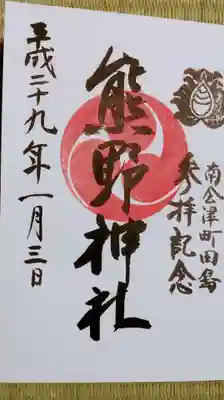 南会津町田島
参拝記念
熊野神社
平成二十九年一月三日